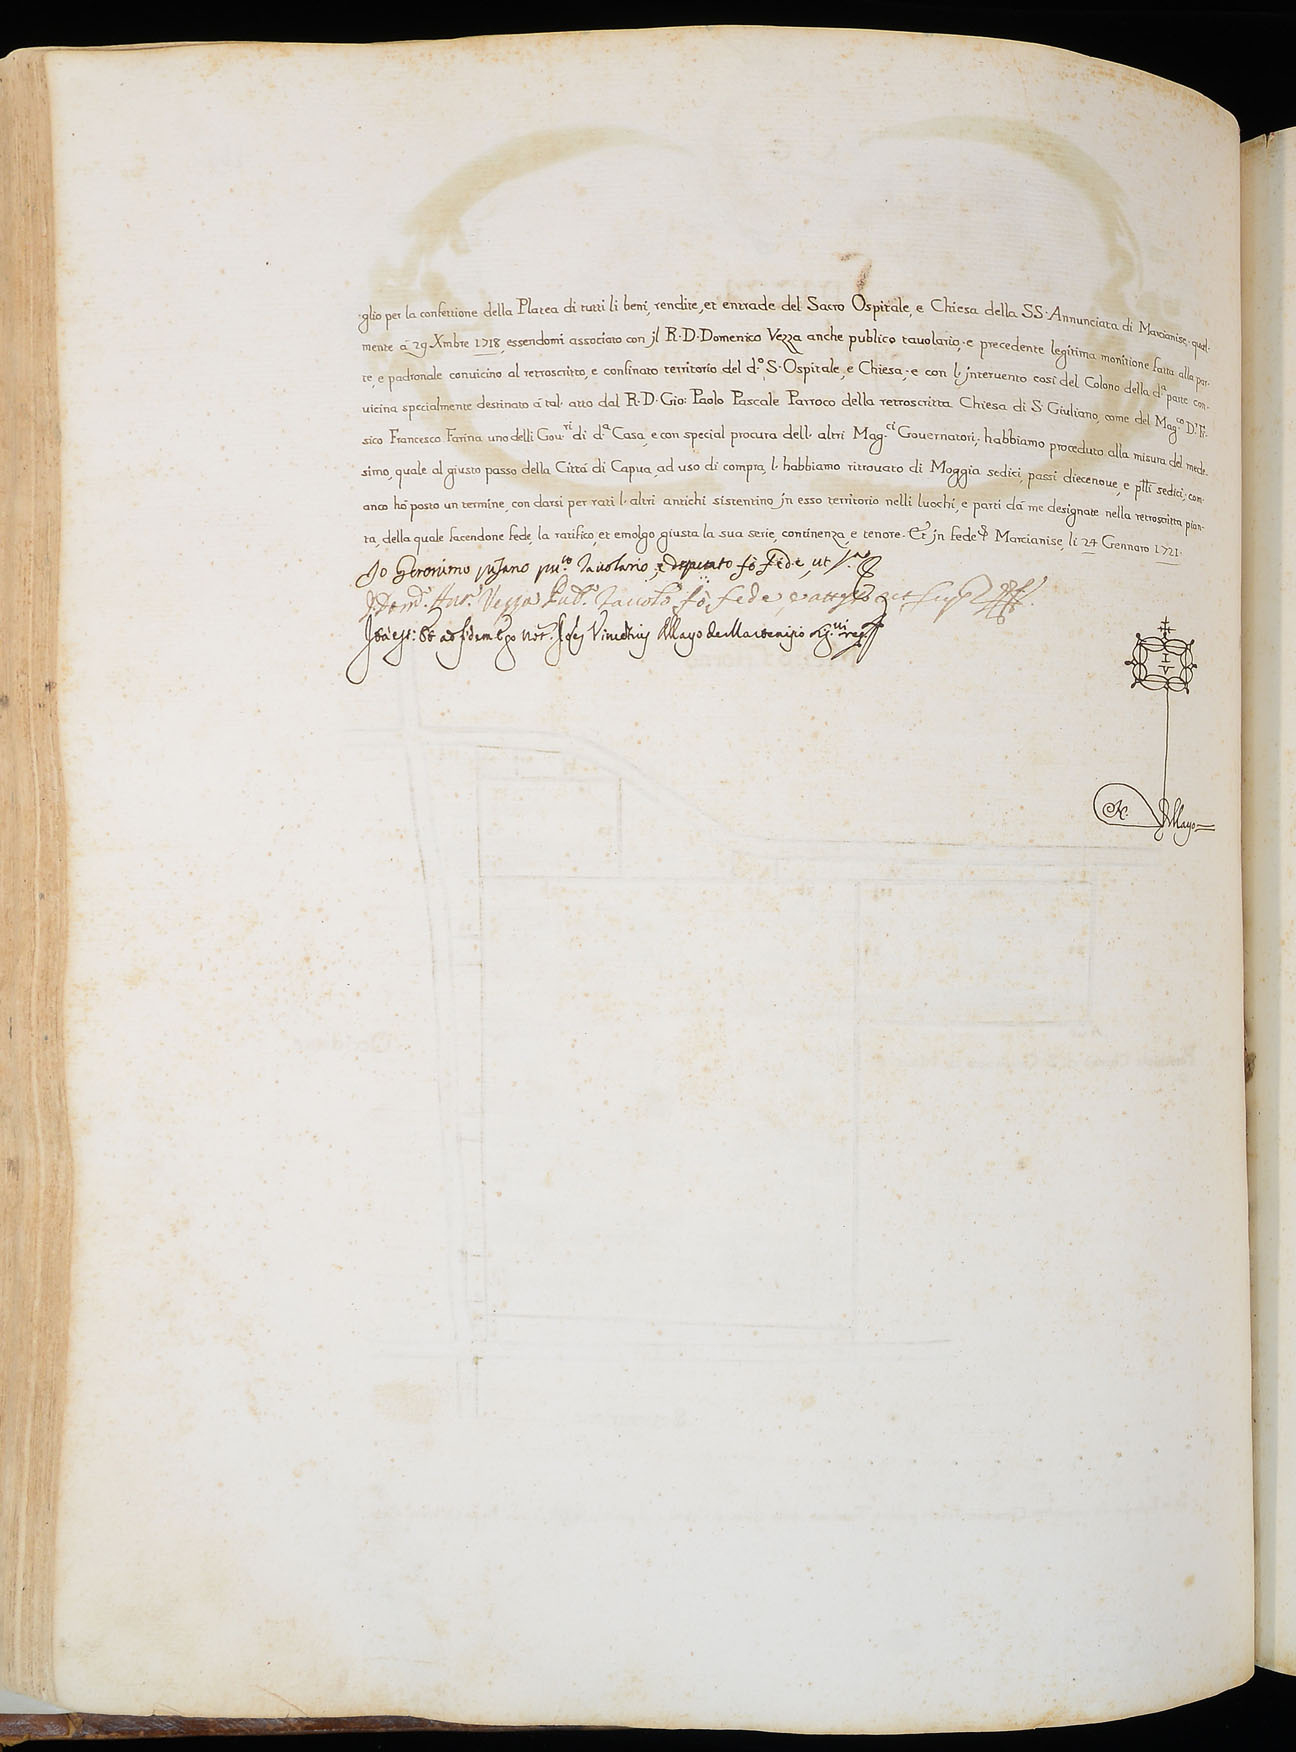 glio per la confettione della Platea di tutti li beni, rendite, et entrade del Sacro Ospitale, e Chiesa della SS. Annunciata di Marcianise, qual-
mente á 29 Xmbre 1718, essendomi associato con jl R.D. Domenico Vezza anche publico tavolario, e precedente legitima monitione fatta alla par-
te, e padronale convicino al retroscritto, e confinato territorio del d.º S. Ospitale, e Chiesa, e con l' jntervento cosí del Colono della d.ª parte con-
vicina specialmente destinato á tal atto dal R.D. Gio: Paolo Pascale Parroco della retroscritta Chiesa di S. Giuliano, come del Mag.co D.r Fi-
sico Francesco Farina uno delli Gov.ri di d.ª Casa, e con special procura dell' altri Mag.ci Governatori, habbiamo proceduto alla misura del mede-
simo, quale al giusto passo della Cittá di Capua, ad uso di compra, l' habbiamo ritrovato di Moggia sedici, passi diecenove, e ptti sedici; con-
anco hó posto un termine, con darsi per rati l' altri antichi sistentino jn esso territorio nelli luochi, e parti dá me designate nella retroscritta pian-
ta, della quale facendone fede, la ratifico, et emolgo giusta la sua serie, continenza, e tenore. Et jn fede &c. Marcianise, li 24 Gennaro 1721.
Io Geronimo pisano pu.co Tavolario, e deputato fó fede, ut s.ª
Io Dom.º Ant.º Vezza Pub.º Tavol.º fó fede, ut supra
Ita est: Et ad fidem Ego Not.s Vincentius Mayo de Martenisio
I V
N.
Mayo